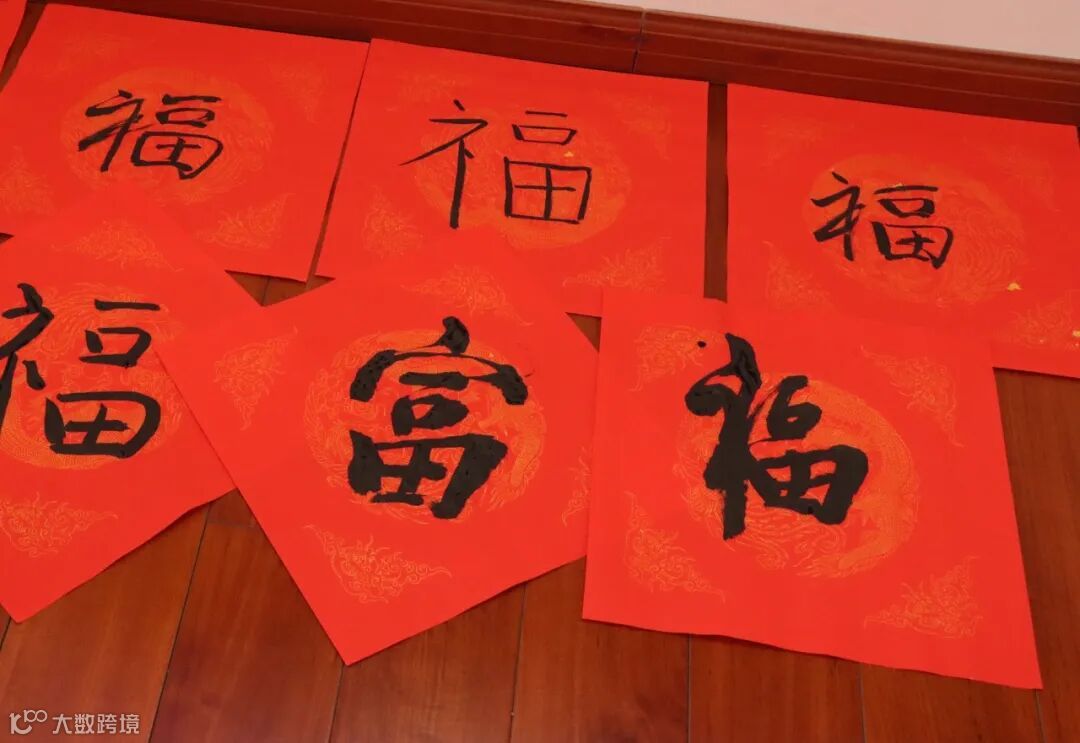 福
福
福
福
富
福
大数跨境